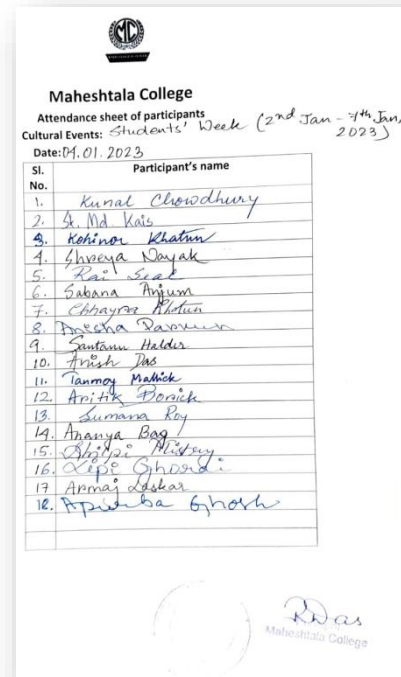 MC
Maheshtala College
Attendance sheet of participants
Cultural Events: Students' Week (2nd Jan - 7th Jan,
2023)
Date: 04.01.2023
Sl. No. Participant's name
1. Kunal Chowdhury
2. Sk. Md Kais
3. Kohinor Khatun
4. Shreya Nayak
5. Rai Seal
6. Sabana Anjum
7. Chhayra Khatun
8. Anesha Parveen
9. Santanu Halder
10. Anish Das
11. Tanmoy Mallick
12. Aritik
13. Sumana Roy
14. Ananya Bag
15. Shilpi Mistry
16. Lipi Ghorai
17 Armaj Laskar
18. Apurba Ghosh
RDas
Maheshtala College